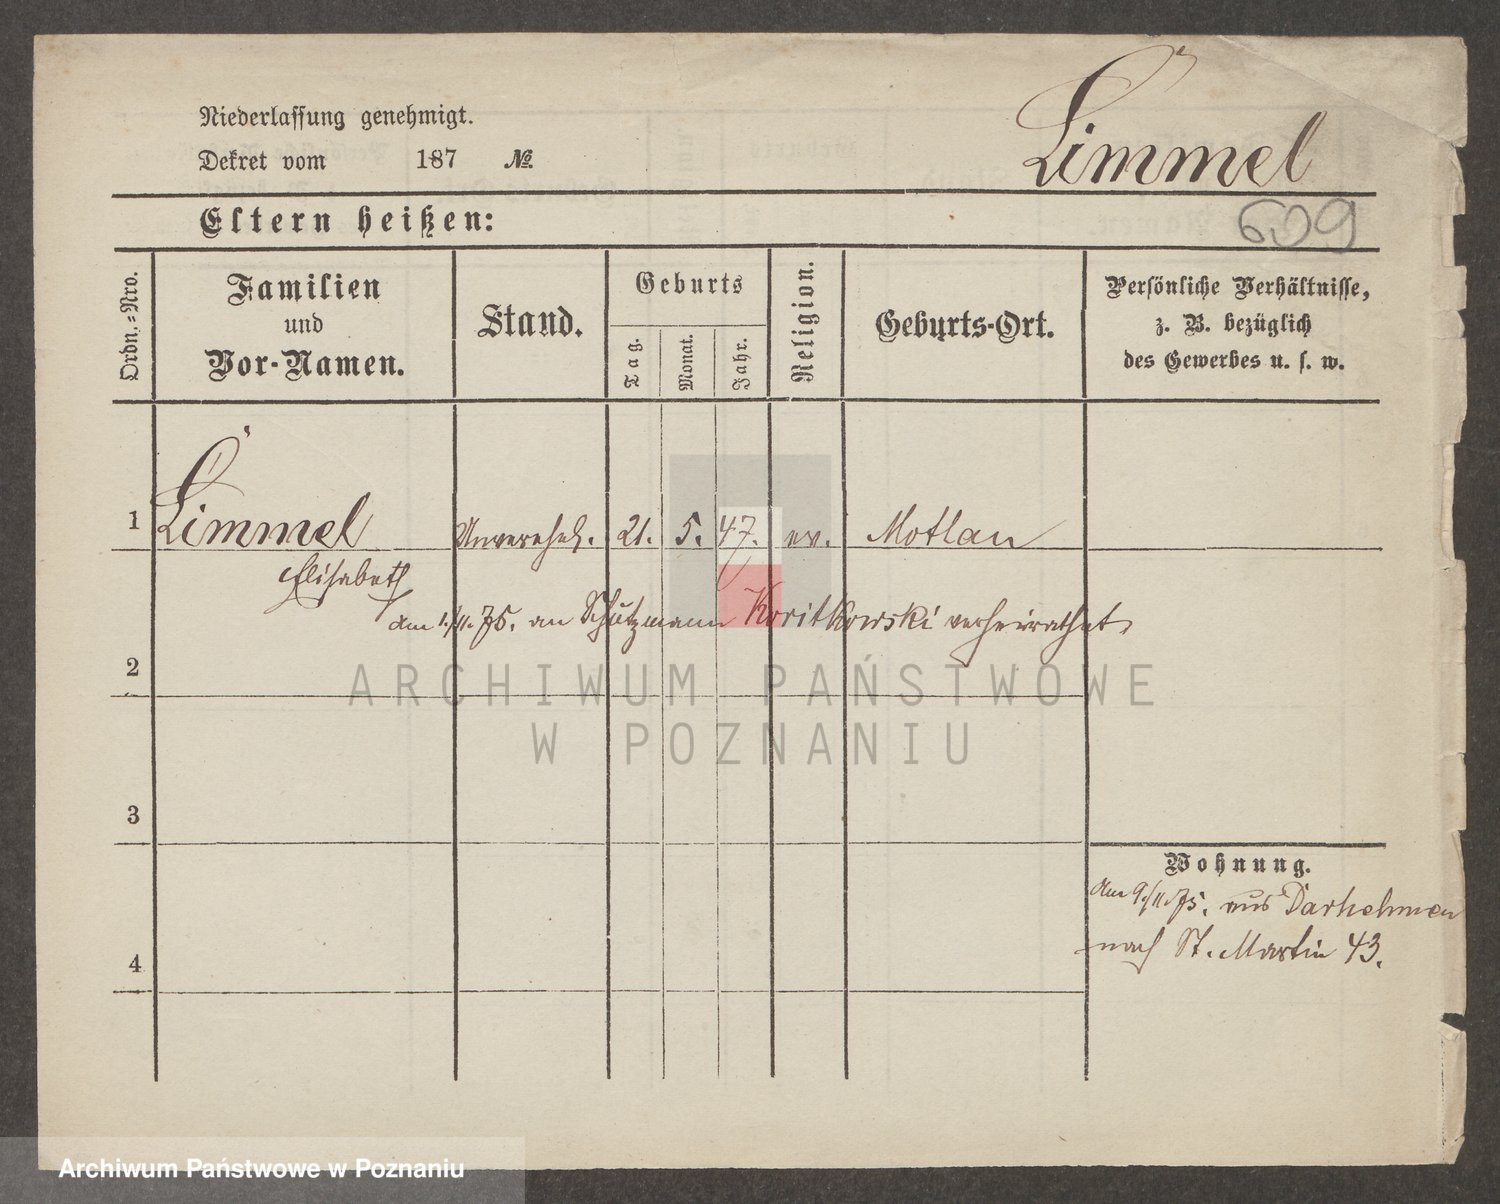 Niederlassung genehmigt.
Dekret vom 187 №
Limmel
609
Eltern heißen:
Ordn.-Nro.
Familien
und
Vor-Namen.
Stand.
Geburts
Tag.
Monat.
Jahr.
Religion.
Geburts-Ort.
Persönliche Verhältnisse,
z. B. bezüglich
des Gewerbes u. s. w.
1 Limmel Unverehel. 21. 5. 47. ev. Motlau
Elisabeth
am 1./11. 75. an Schutzmann Koritkowski verheirathet.
2
ARCHIWUM PAŃSTWOWE
W POZNANIU
3
Wohnung.
Am 9./11. 75. aus Darkehmen
nach St. Martin 43.
4
Archiwum Państwowe w Poznaniu